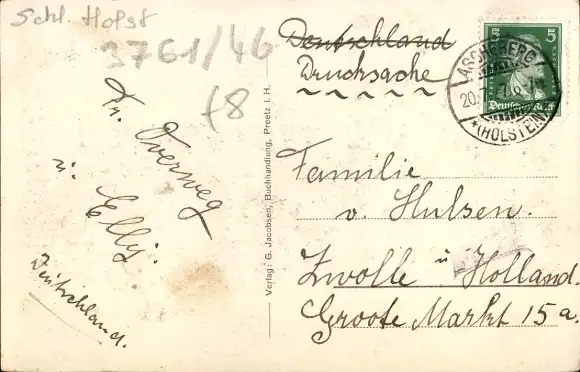 Schl. Holst
3761/46
f8
Fr. Overweg
u. Elly.
Deutschland.
Verlag: G. Jacobsen, Buchhandlung, Preetz i. H.
Deutschland
Drucksache
5 5
Deutsches Reich
ASCHEBERG
(HOLSTEIN)
Familie
v. Hulsen.
Zwolle ü Holland.
Groote Markt 15a.